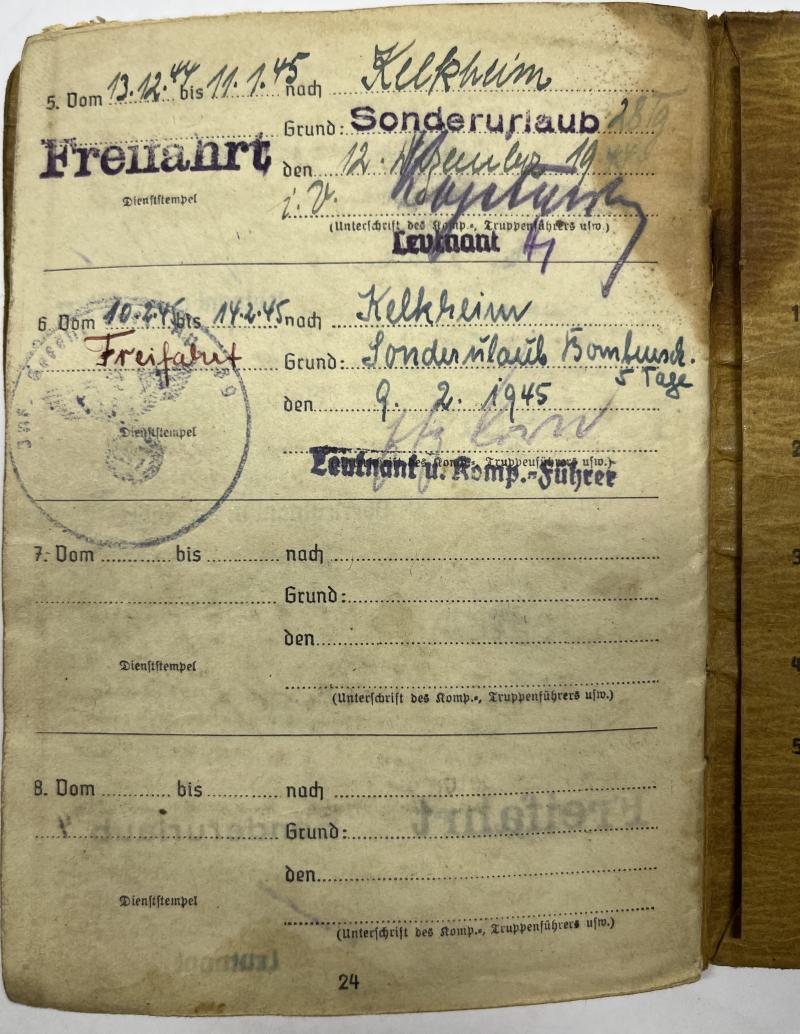 5. Vom 13.12.44 bis 11.1.45 nach Kelkheim
Grund: Sonderurlaub 28 Tg
Freifahrt
den 12. Dezember 19
Dienststempel
i. V.
(Unterschrift des Komp.-, Truppenführers usw.)
Leutnant
6. Vom 10.2.45 bis 14.2.45 nach Kelkheim
Freifahrt
Grund: Sonderulaub Bombensch.
5 Tage
den 9. 2. 1945
Dienststempel
(Unterschrift des Komp.-, Truppenführers usw.)
Leutnant u. Komp.-Führer
7. Vom bis nach
Grund:
den
Dienststempel
(Unterschrift des Komp.-, Truppenführers usw.)
8. Vom bis nach
Grund:
den
Dienststempel
(Unterschrift des Komp.-, Truppenführers usw.)
24
1
2
3
4
5